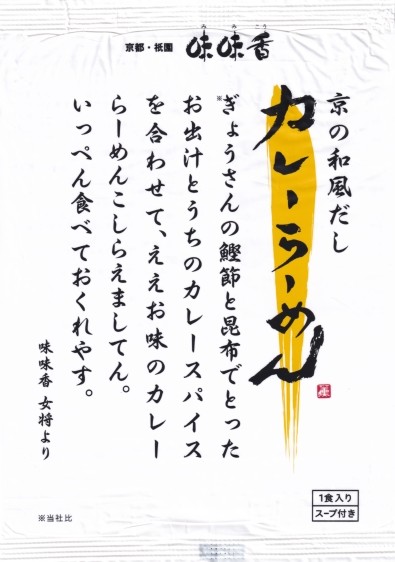 京都・祇園 味味香
みみこう
京の和風だし
カレーらーめん
※ぎょうさんの鰹節と昆布でとった
お出汁とうちのカレースパイス
を合わせて、ええお味のカレー
らーめんこしらえましてん。
いっぺん食べておくれやす。
味味香 女将より
1食入り
スープ付き
※当社比